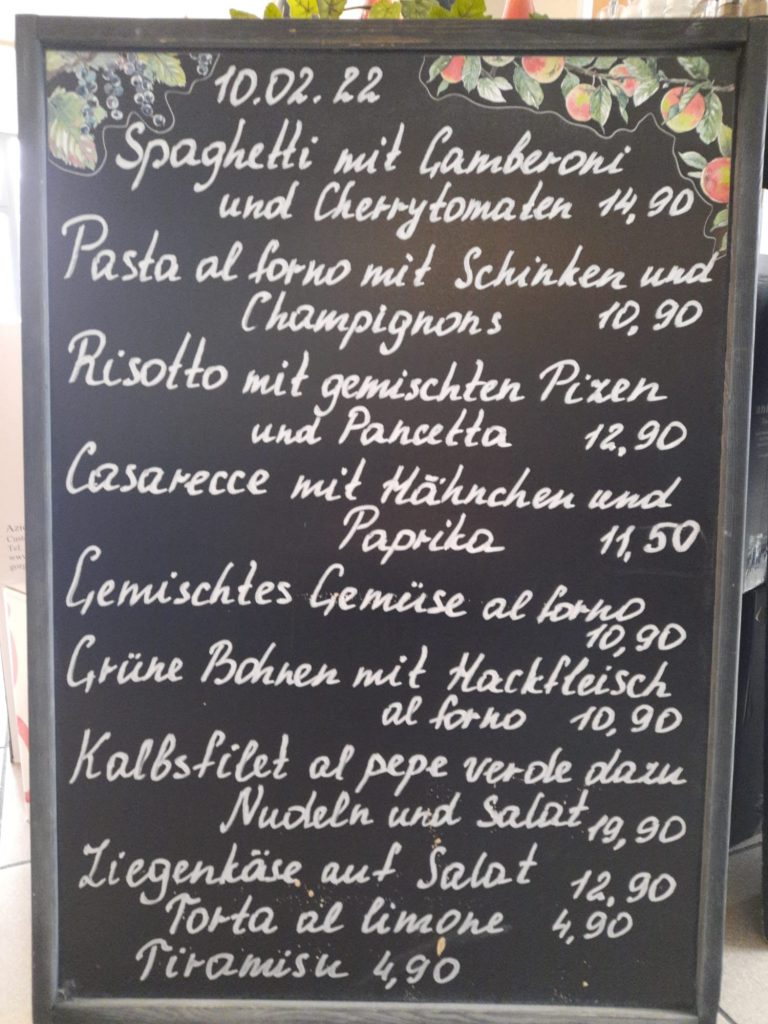 10.02.22
Spaghetti mit Gamberoni
und Cherrytomaten 14,90
Pasta al forno mit Schinken und
Champignons 10,90
Risotto mit gemischten Pizen
und Pancetta 12,90
Casarecce mit Hähnchen und
Paprika 11,50
Gemischtes Gemüse al forno
10,90
Grüne Bohnen mit Hackfleisch
al forno 10,90
Kalbsfilet al pepe verde dazu
Nudeln und Salat 19,90
Ziegenkäse auf Salat 12,90
Torta al limone 4,90
Tiramisu 4,90